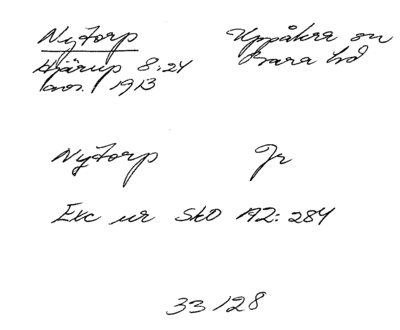 Nytorp
Uppåkra sn
Hjärup 8:24
Bara hd
avs. 1913
Nytorp Jr
Exc ur SkO A2: 284
33 128